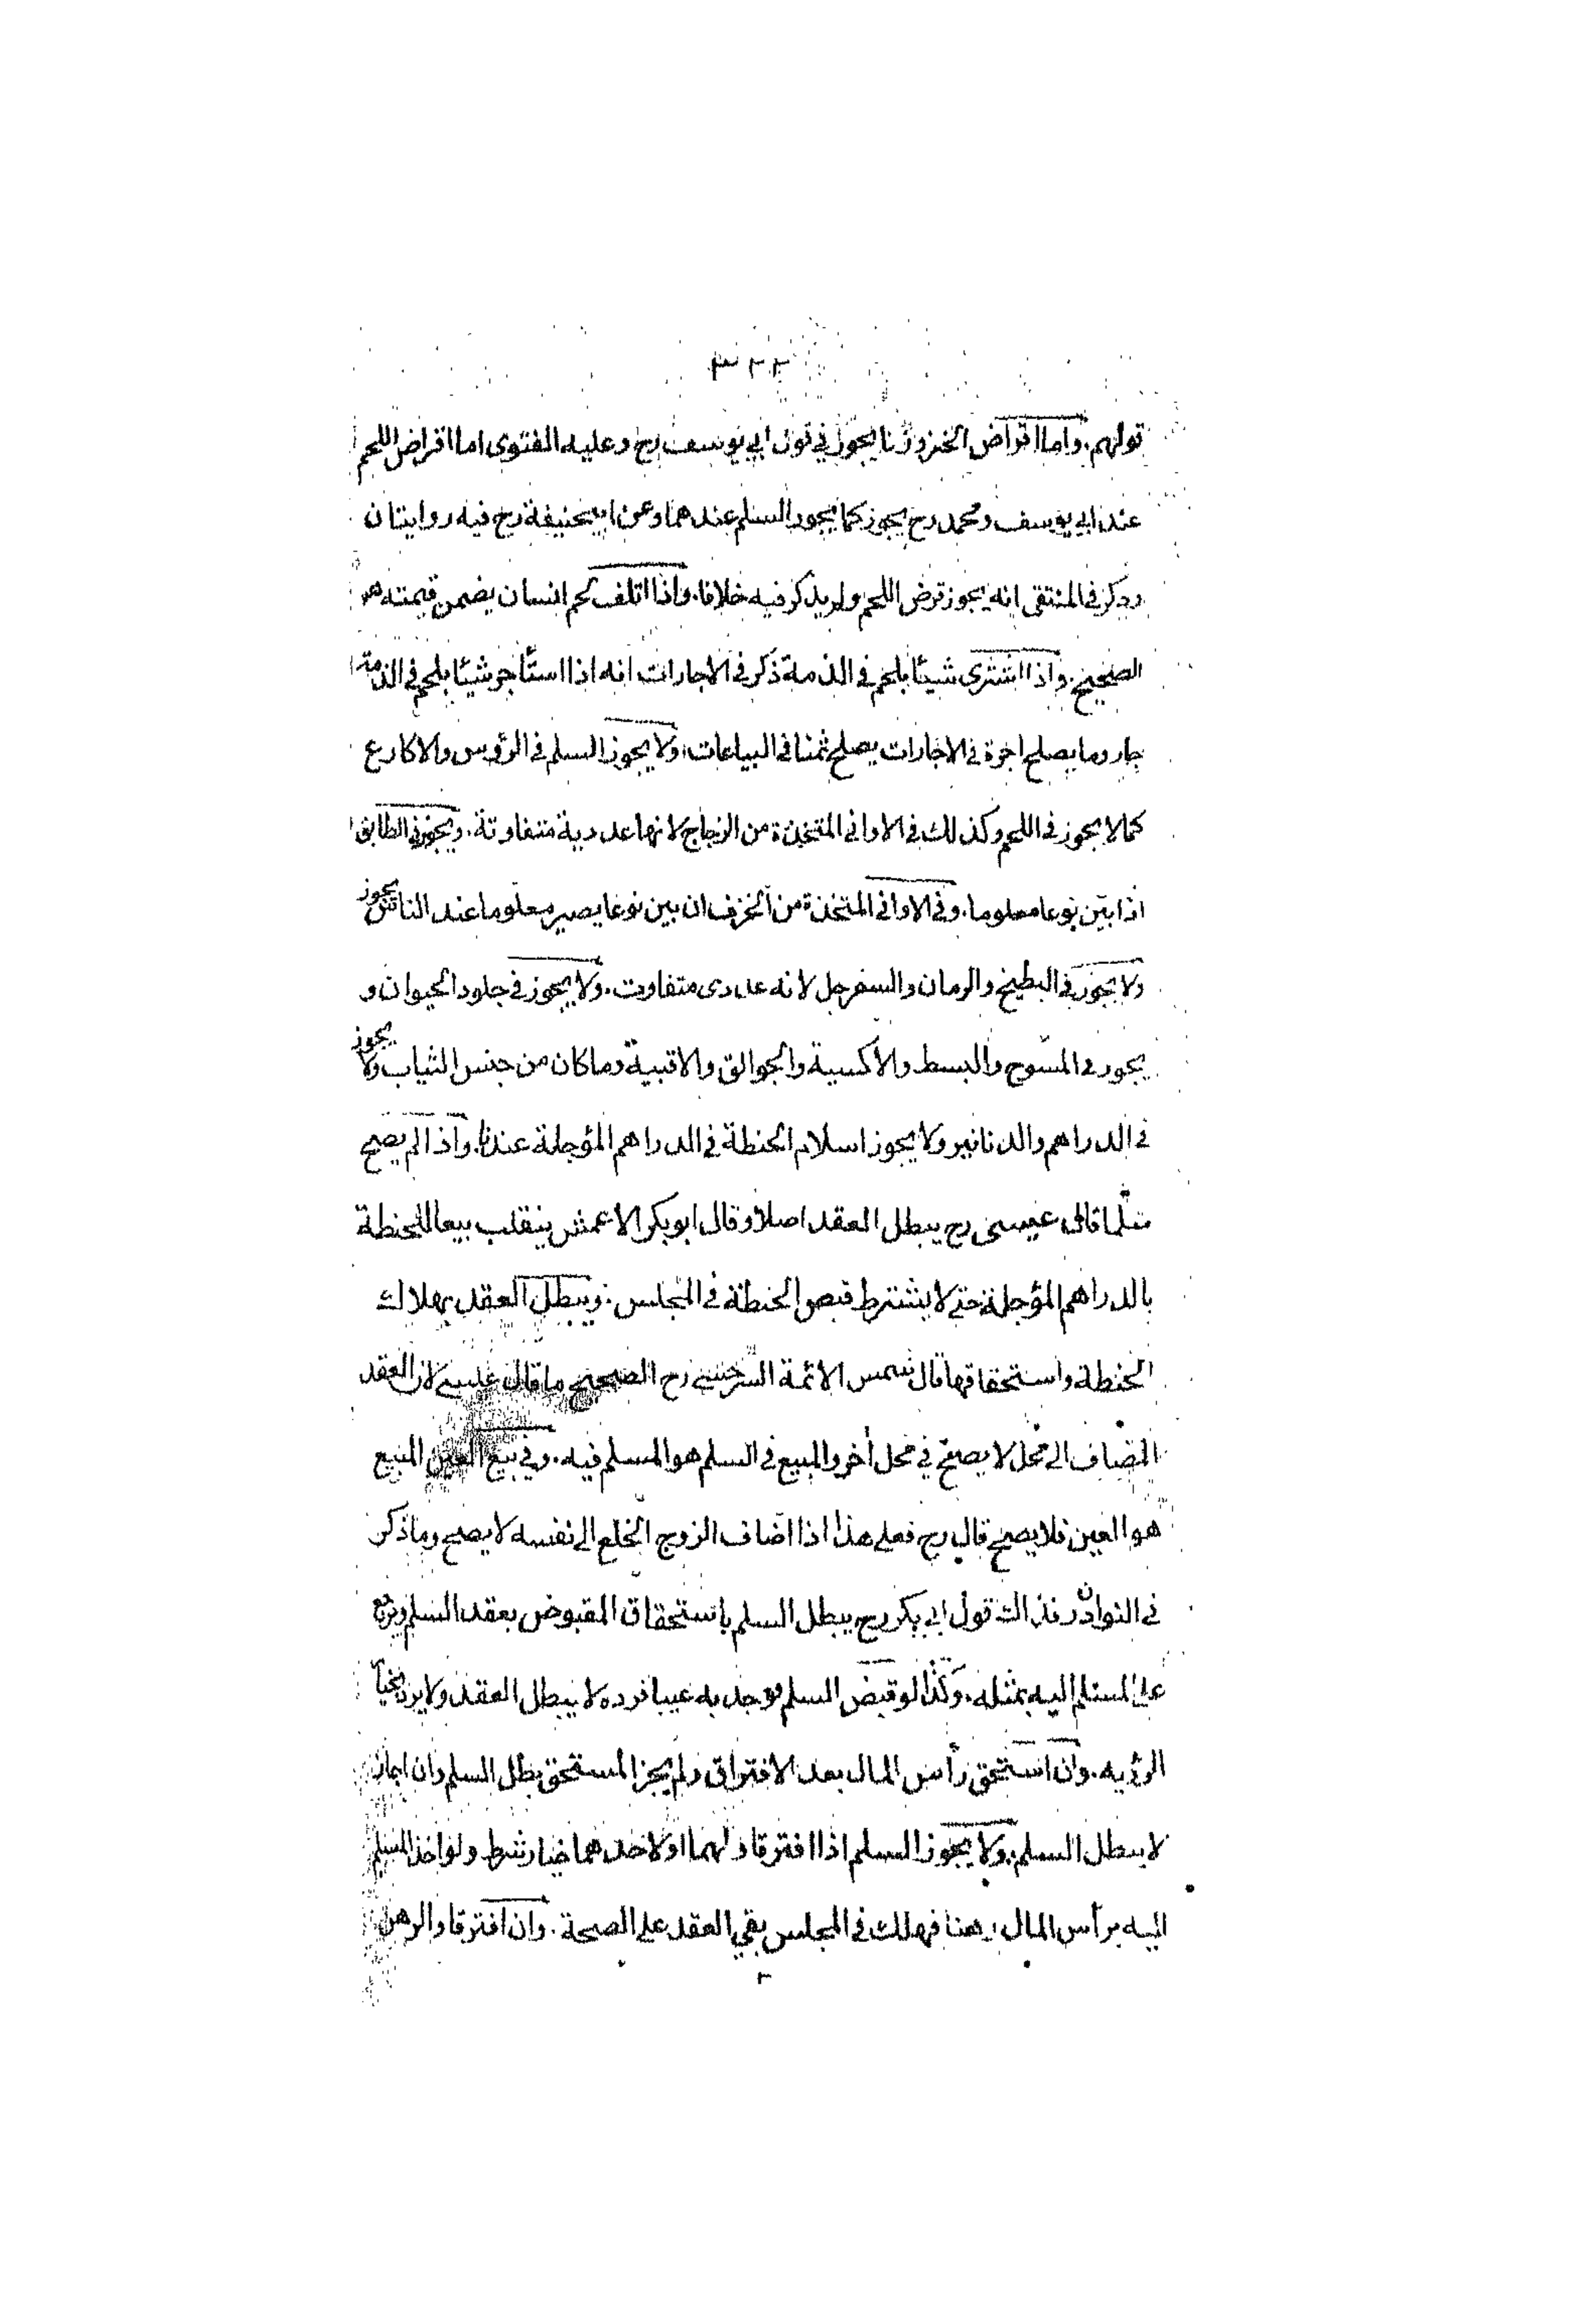 ٣٢٢
قولهم . واما اقراض الخبز وزنا يجوز في قول ابي يوسف رح وعليه الفتوى اما اقراض اللحم
عند ابي يوسف ومحمد رح يجوز كما يجوز السلم عندهما وعن ابيحنيفة رح فيه روايتان
وذكر في المنتقى انه يجوز قرض اللحم ولم يذكر فيه خلافا . واذا اتلف لحم انسان يضمن قيمته هو
الصحيح . واذا اشترى شيئا بلحم في الذمة ذكر في الاجارات انه اذا استأجر شيئا بلحم في الذمة
جاز وما يصلح اجرة في الاجارات يصلح ثمنا في البياعات . ولا يجوز السلم في الرؤس والاكارع
كما لا يجوز في اللحم وكذلك في الاواني المتخذة من الزجاج لانها عددية متفاوتة . ويجوز في الطابق
اذا بيّن نوعا معلوما . وفي الاواني المتخذة من الخزف ان بين نوعا يصير معلوما عند الناس يجوز
ولا يجوز في البطيخ والرمان والسفرجل لانه عددى متفاوت . ولا يجوز في جلود الحيوان و
يجوز في المسوح والبسط والأكسية والجوالق والاقبية وما كان من جنس الثياب ولا يجوز
في الدراهم والدنانير ولا يجوز اسلام الحنطة في الدراهم المؤجلة عندنا . واذا لم يصح
سلما قال عيسى رح يبطل العقد اصلا وقال ابو بكر الاعمش ينقلب بيعا للحنطة
بالدراهم المؤجلة حتى لا يشترط قبض الحنطة في المجلس . ويبطل العقد بهلاك
الحنطة واستحقاقها قال شمس الائمة السرخسي رح الصحيح ما قال عيسى لان العقد
المضاف الى محل لا يصح في محل أخر والمبيع في السلم هو المسلم فيه . وفي بيع العين المبيع
هو العين فلا يصح قال رح فعلى هذا اذا اضاف الزوج الخلع الى نفسه لا يصح وما ذكر
في النوادر فذاك قول ابي بكر رح يبطل السلم باستحقاق المقبوض بعقد السلم ويرجع
على المسلم اليه بمثله . وكذا لو قبض السلم فوجد به عيبا فرده لا يبطل العقد ولا يرد بخيار
الرؤيه . وان استحق رأس المال بعد الافتراق ولم يجز المستحق بطل السلم وان اجاز
لا يبطل السلم . ولا يجوز السلم اذا افترقا ولهما او لاحدهما خيار شرط ولو اخذ المسلم
اليه برأس المال رهنا فهلك في المجلس بقي العقد على الصحة . وان افترقا والرهن